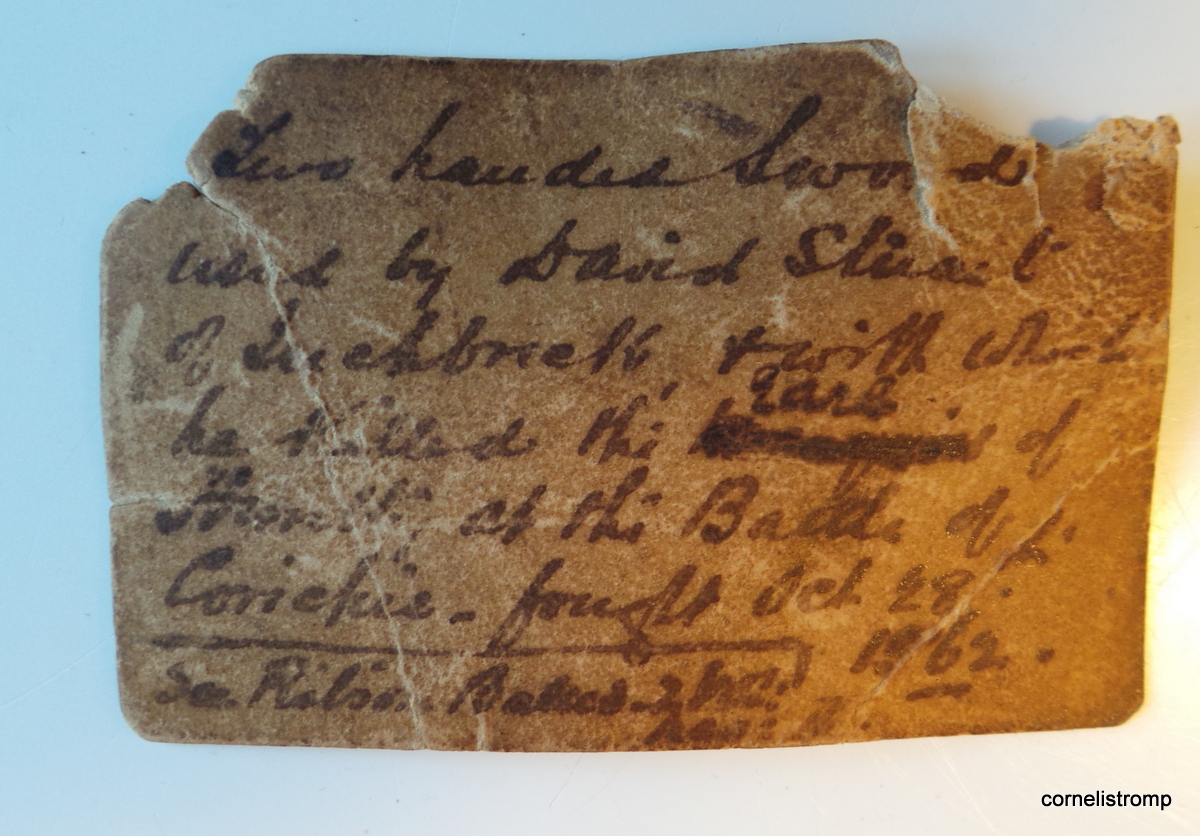 Two handed Sword
used by David Stuart
of Inchbreck, & with which
he killed the Earl of
Huntly at the Battle of
Corichie - fought Oct 28.
1562.
Battles
cornelistromp